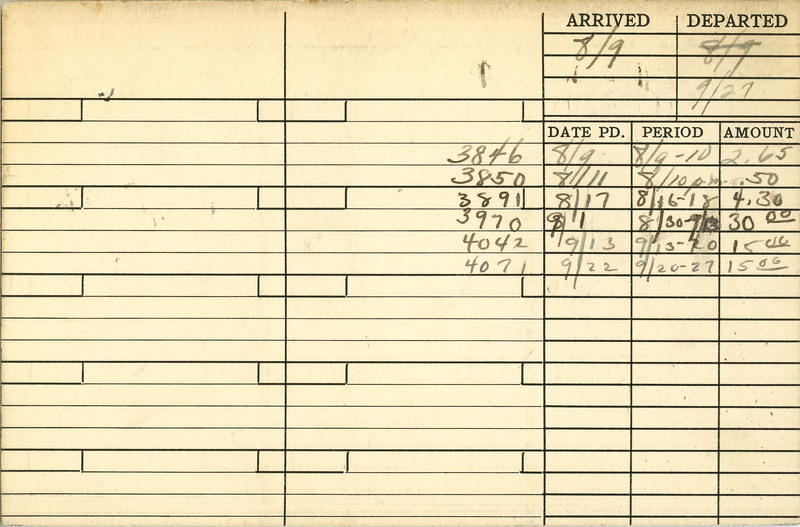 ARRIVED DEPARTED
8/9 8/9
9/27
DATE PD. PERIOD AMOUNT
3846 8/9 8/9-10 2.65
3850 8/11 8/10 pm .50
3891 8/17 8/16-18 4.30
3970 9/1 8/30-9/13 30 00
4042 9/13 9/13-20 15 00
4071 9/22 9/20-27 15 00